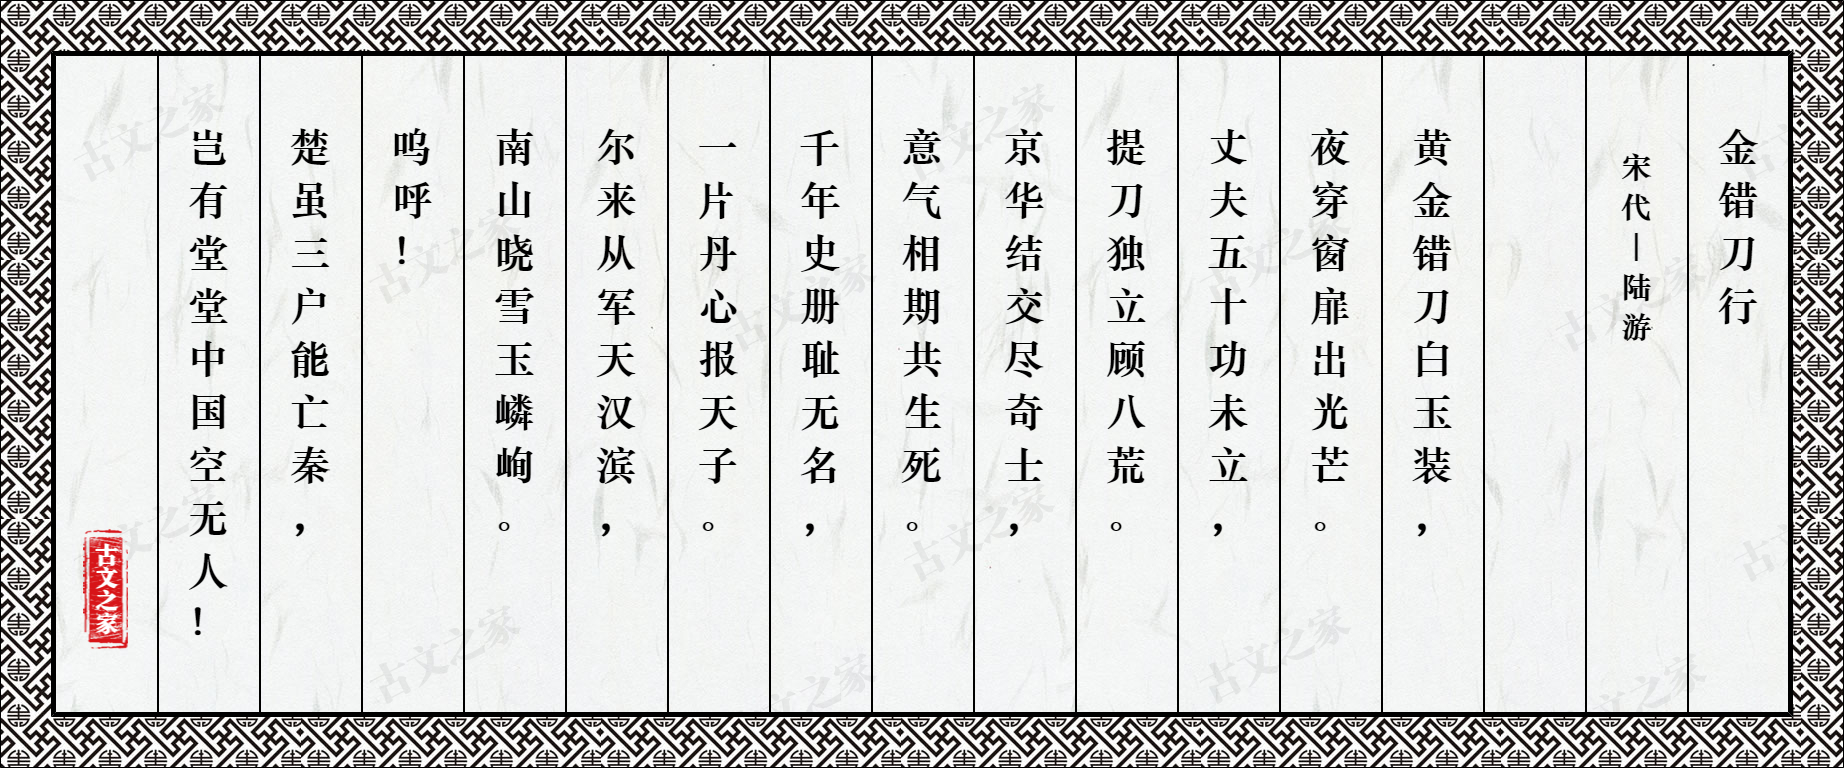 金错刀行
宋代－陆游
黄金错刀白玉装，
夜穿窗扉出光芒。
丈夫五十功未立，
提刀独立顾八荒。
京华结交尽奇士，
意气相期共生死。
千年史册耻无名，
一片丹心报天子。
尔来从军天汉滨，
南山晓雪玉嶙峋。
呜呼！
楚虽三户能亡秦，
岂有堂堂中国空无人！
古文之家